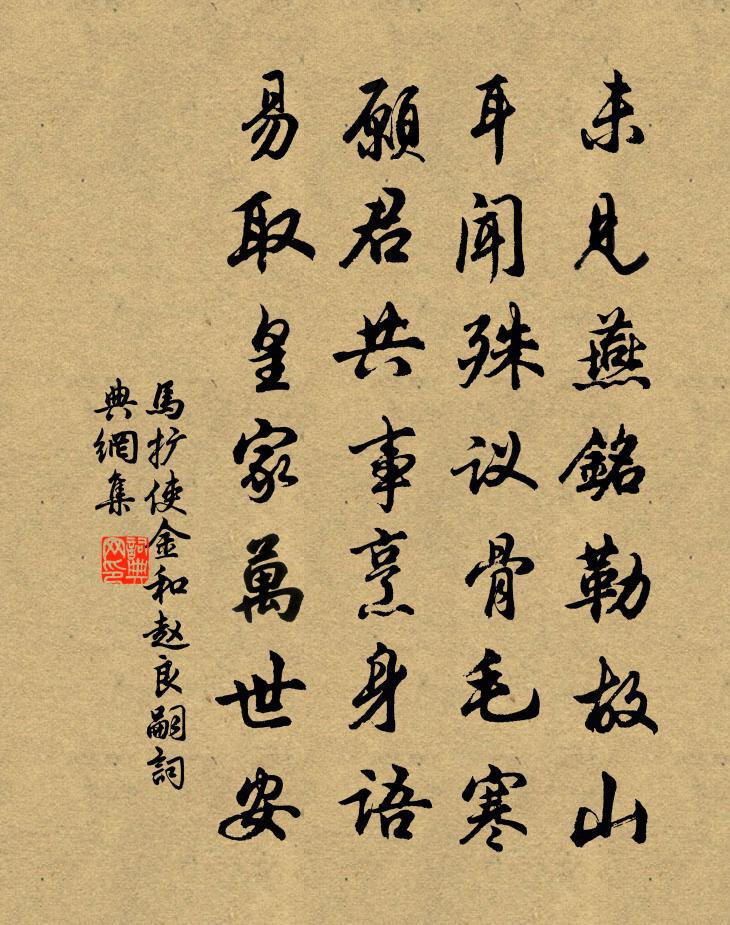 未見燕銘勒故山
耳聞殊议骨毛寒
願君共事烹身語
易取皇家萬世安
馬扩使金和赵良嗣詞
典網集
詞典
网印